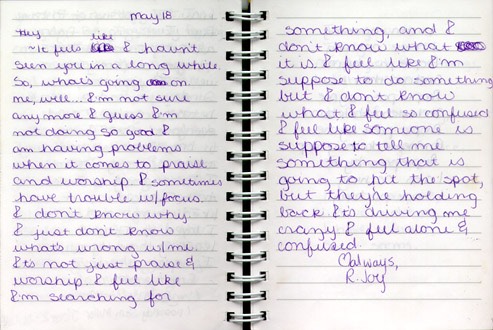 May 18
Hey,
like
~It feels I havn't
seen you in a long while.
So, whats going on
me, well... I'm not sure
any more I guess I'm
not doing so good I
am having problems
when it comes to praise
and worship I sometimes
have trouble w/focus.
I don't know why
I just don't know
what's wrong w/me.
It's not just praise &
worship. I feel like
I'm searching for
something, and I
don't know what
it is I feel like I'm
suppose to do something
but I don't know
what I feel so confused
I feel like someone is
suppose to tell me
something that is
going to hit the spot,
but they're holding
back It's driving me
crazy I feel alone &
confused.
always,
R. Joy